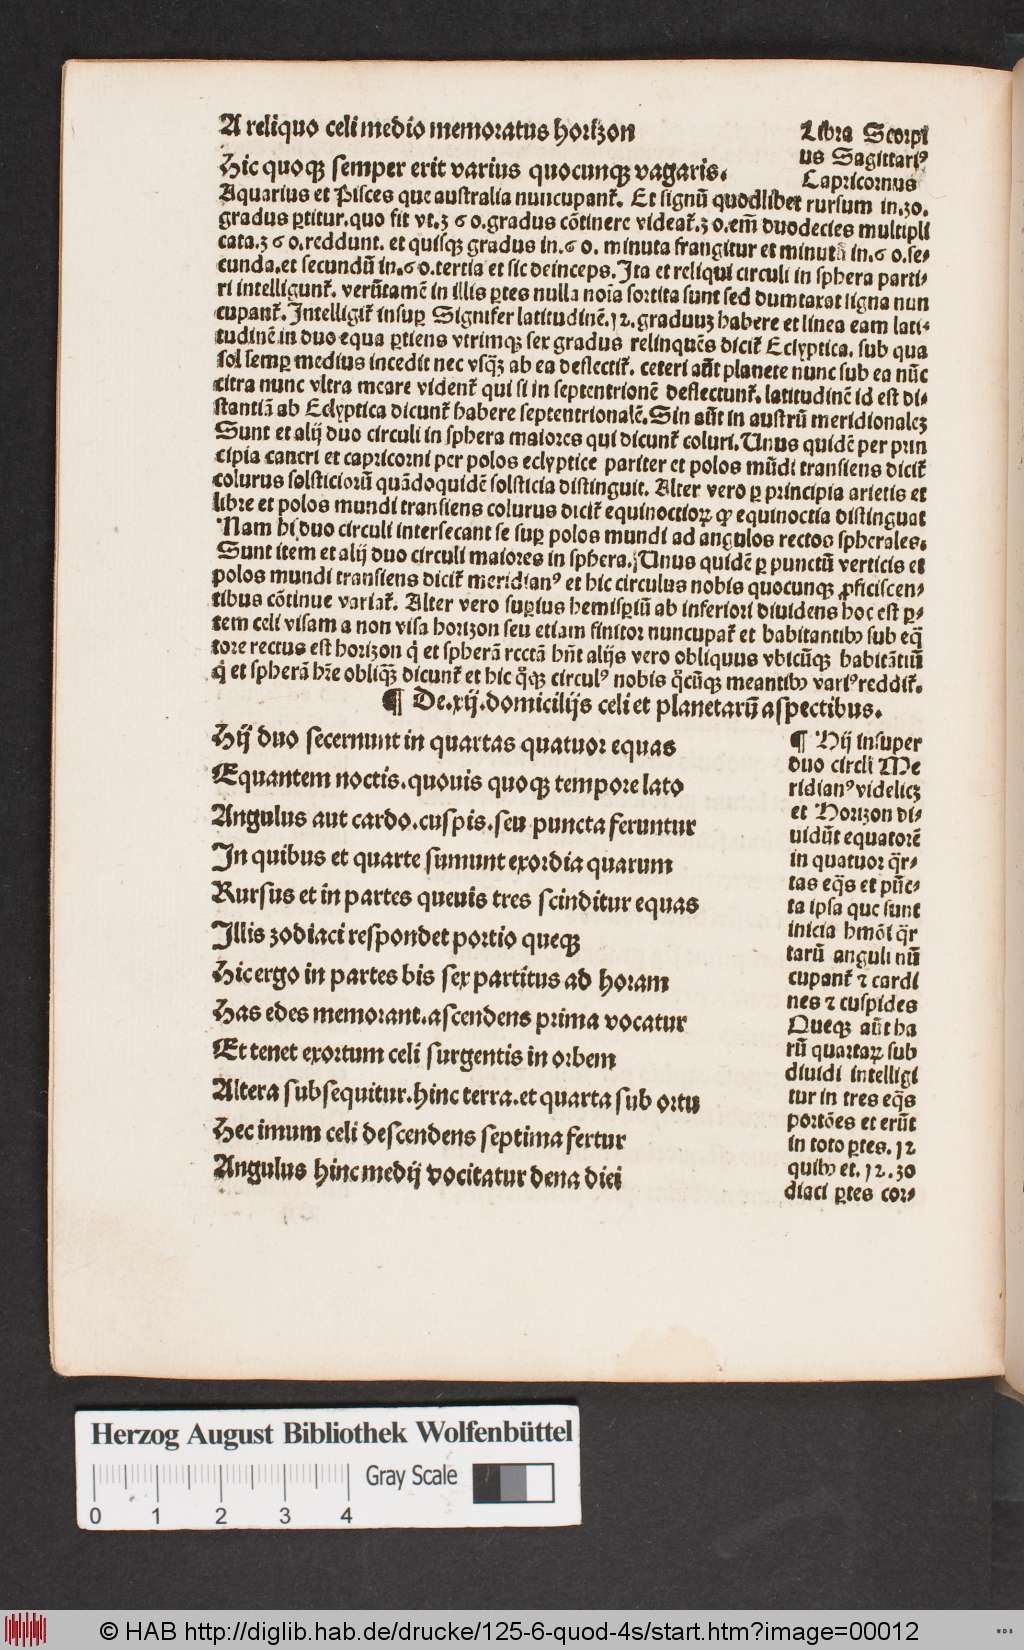 A reliquo celi medio memoratus horizon
Hic quoqꝫ semper erit varius quocunqꝫ vagaris.
Libra Scorpi
us Sagittariꝰ
Capricornus
Aquarius et Pisces que australia nuncupant᷑. Et signū quodlibet rursum in.30.
gradus ꝑtitur.quo fit vt.360.gradus cōtinere videat᷑.30.em̄ duodecies multipli
cata.360.reddunt. et quisqꝫ gradus in.60. minuta frangitur et minutū in.60.se⸗
cunda.et secundū in.60.tertia et sic deinceps. Ita et reliqui circuli in sphera parti⸗
ri intelligunt᷑. verūtamē in illis ꝑtes nulla noīa sortita sunt sed dumtaxat signa nun
cupant᷑. Intelligit᷑ insuꝑ Signifer latitudinē.12.graduuꝫ habere et linea eam lati⸗
tudinē in duo equa ꝑtiens vtrimqꝫ sex gradus relinquēs dicit᷑ Eclyptica. sub qua
sol semꝑ medius incedit nec vsqꝫ̄ ab ea deflectit᷑. ceteri aūt planete nunc sub ea nūc
citra nunc vltra meare vident᷑ qui si in septentrionē deflectunt᷑. latitudinē id est di⸗
stantiā ab Eclyptica dicunt᷑ habere septentrionalē. Sin aūt in austrū meridionaleꝫ
Sunt et alij duo circuli in sphera maiores qui dicunt᷑ coluri. Unus quidē per prin
cipia cancri et capricorni per polos eclyptice pariter et polos mūdi transiens dicit᷑
colurus solsticiorū quādoquidē solsticia distinguit. Alter vero ꝑ principia arietis et
libre et polos mundi transiens colurus dicit᷑ equinoctioꝝ ꝙ equinoctia distinguat
Nam hi duo circuli intersecant se suꝑ polos mundi ad angulos rectos spherales.
Sunt item et alij duo circuli maiores in sphera. Unus quidē ꝑ punctū verticis et
polos mundi transiens dicit᷑ meridianꝰ et hic circulus nobis quocunqꝫ ꝓficiscen⸗
tibus cōtinue variat᷑. Alter vero suꝑius hemisꝑiū ab inferiori diuidens hoc est ꝑ⸗
tem celi visam a non visa horizon seu etiam finitor nuncupat᷑ et habitantibꝰ sub eq̄
tore rectus est horizon q̇ et spherā rectā hn̄t alijs vero obliquus vbicūqꝫ habitātiū
q̇ et spherā hr̄e obliqꝫ̄ dicunt᷑ et hic q̊qꝫ circulꝰ nobis q̊cūqꝫ meantibꝰ variꝰ reddit᷑.
¶ De.xij.domicilijs celi et planetarū aspectibus.
Hij duo secernunt in quartas quatuor equas
Equantem noctis.quouis quoqꝫ tempore lato
Angulus aut cardo.cuspis.seu puncta feruntur
In quibus et quarte sumunt exordia quarum
Rursus et in partes queuis tres scinditur equas
Illis zodiaci respondet portio queqꝫ
Hic ergo in partes bis sex partitus ad horam
Has edes memorant.ascendens prima vocatur
Et tenet exortum celi surgentis in orbem
Altera subsequitur.hinc terra.et quarta sub ortu
Hec imum celi descendens septima fertur
Angulus hinc medij vocitatur dena diei
¶ Hij insuper
duo circli Me
ridianꝰ videlicꝫ
et Horizon di⸗
uidūt equatorē
in quatuor q̄r⸗
tas eq̄s et pūc⸗
ta ipsa que sunt
inicia hmōi q̄r
tarū anguli nū
cupant᷑ ⁊ cardi
nes ⁊ cuspides
Queqꝫ aūt ha
rū quartaꝝ sub
diuidi intelligi
tur in tres eq̄s
portōes et erūt
in toto ꝑtes.12
quibꝰ et.12.zo
diaci ꝑtes cor⸗
Herzog August Bibliothek Wolfenbüttel
Gray Scale
0 1 2 3 4
© HAB http://diglib.hab.de/drucke/125-6-quod-4s/start.htm?image=00012